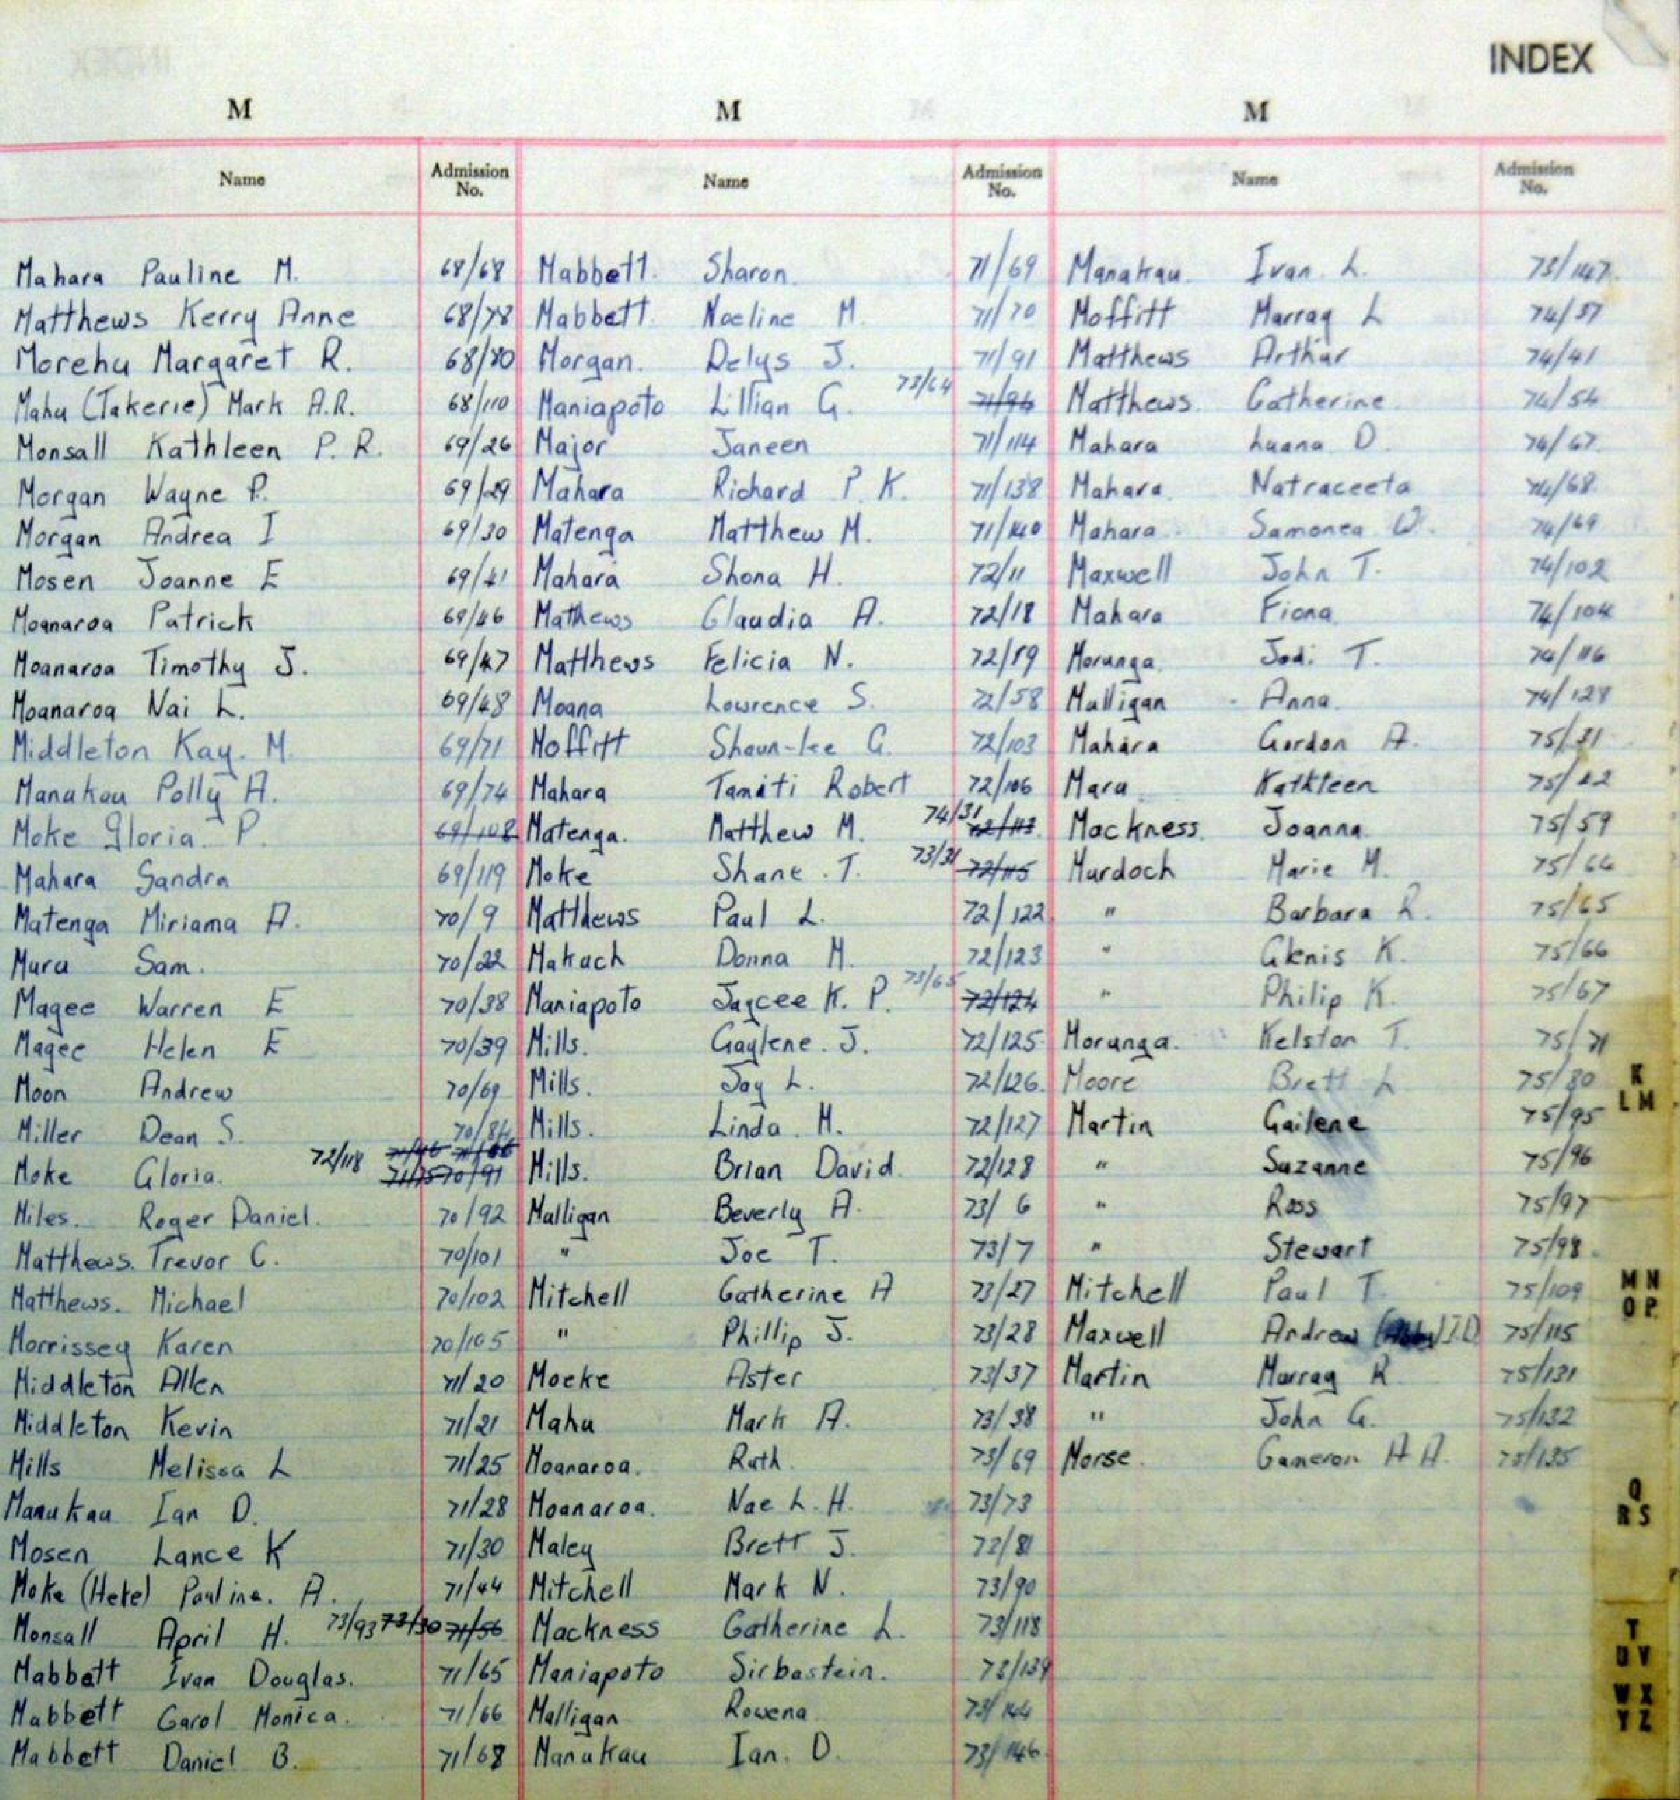 INDEX
M
Name Admission No.
Mahara Pauline M. 68/68
Matthews Kerry Anne 68/78
Morehu Margaret R. 68/80
Mahu (Takerie) Mark A.R. 68/110
Monsall Kathleen P. R. 69/26
Morgan Wayne P. 69/29
Morgan Andrea I 69/30
Mosen Joanne E 69/41
Moanaroa Patrick 69/46
Moanaroa Timothy J. 69/47
Moanaroa Nai L. 69/48
Middleton Kay. M. 69/71
Manukau Polly A. 69/74
Moke Gloria P. 69/108
Mahara Sandra 69/119
Matenga Miriama A. 70/9
Muru Sam. 70/22
Magee Warren E 70/38
Magee Helen E 70/39
Moon Andrew 70/69
Miller Dean S. 70/84
Moke Gloria. 72/118 70/91
Miles. Roger Daniel. 70/92
Matthews. Trevor C. 70/101
Matthews. Michael 70/102
Morrissey Karen 70/105
Middleton Allen 71/20
Middleton Kevin 71/21
Mills Melissa L 71/25
Manukau Ian D. 71/28
Mosen Lance K 71/30
Moke (Heke) Pauline. A. 71/44
Monsall April H. 73/93 73/30 71/56
Mabbett Ivan Douglas. 71/65
Mabbett Carol Monica. 71/66
Mabbett Daniel B. 71/68
M
Name Admission No.
Mabbett. Sharon. 71/69
Mabbett. Noeline M. 71/70
Morgan. Delys J. 71/91
Maniapoto Lillian G. 73/64 71/96
Major Janeen 71/114
Mahara Richard P K. 71/138
Matenga Matthew M. 71/140
Mahara Shona H. 72/11
Mathews Claudia A. 72/18
Matthews Felicia N. 72/19
Moana Lawrence S. 72/58
Moffitt Shaun-lee G. 72/103
Mahara Tamati Robert 72/106
Matenga. Matthew M. 74/31 72/113
Moke Shane. T. 73/31 72/115
Matthews Paul L. 72/122
Makuch Donna M. 72/123
Maniapoto Jaycee K. P. 73/65 72/124
Mills. Gaylene. J. 72/125
Mills. Jay L. 72/126.
Mills. Linda. M. 72/127
Mills. Brian David. 72/128
Mulligan Beverly A. 73/6
" Joe T. 73/7
Mitchell Catherine A 73/27
" Phillip J. 73/28
Moeke Aster 73/37
Mahu Mark A. 73/38
Moanaroa. Ruth. 73/69
Moanaroa. Nae L. H. 73/73
Maley Brett J. 73/81
Mitchell Mark N. 73/90
Mackness Catherine L. 73/118
Maniapoto Sirbastein. 73/139
Mulligan Rowena 73/144
Manukau Ian. D. 73/146
M
Name Admission No.
Manakau. Ivan. L. 73/147
Moffitt Murray L 74/37
Matthews Arthur 74/41
Matthews. Catherine. 74/54
Mahara Luana D. 74/67
Mahara. Natraceeta 74/68
Mahara. Samonea W. 74/69
Maxwell John T. 74/102
Mahara Fiona. 74/104
Morunga. Jodi T. 74/116
Mulligan Anna. 74/128
Mahara Gordon A. 75/31
Mara Kathleen 75/42
Mackness. Joanna. 75/59
Murdoch Marie M. 75/64
" Barbara R. 75/65
" Glenis K. 75/66
" Philip K. 75/67
Morunga. Kelston T. 75/71
Moore Brett L 75/80
Martin Gailene 75/95
" Suzanne 75/96
" Ross 75/97
" Stewart 75/98
Mitchell Paul T. 75/109
Maxwell Andrew I.D. 75/115
Martin Murray R 75/131
" John G. 75/132
Morse. Cameron A A. 75/135
K
L M
M N
O P
Q
R S
T
U V
W X
Y Z